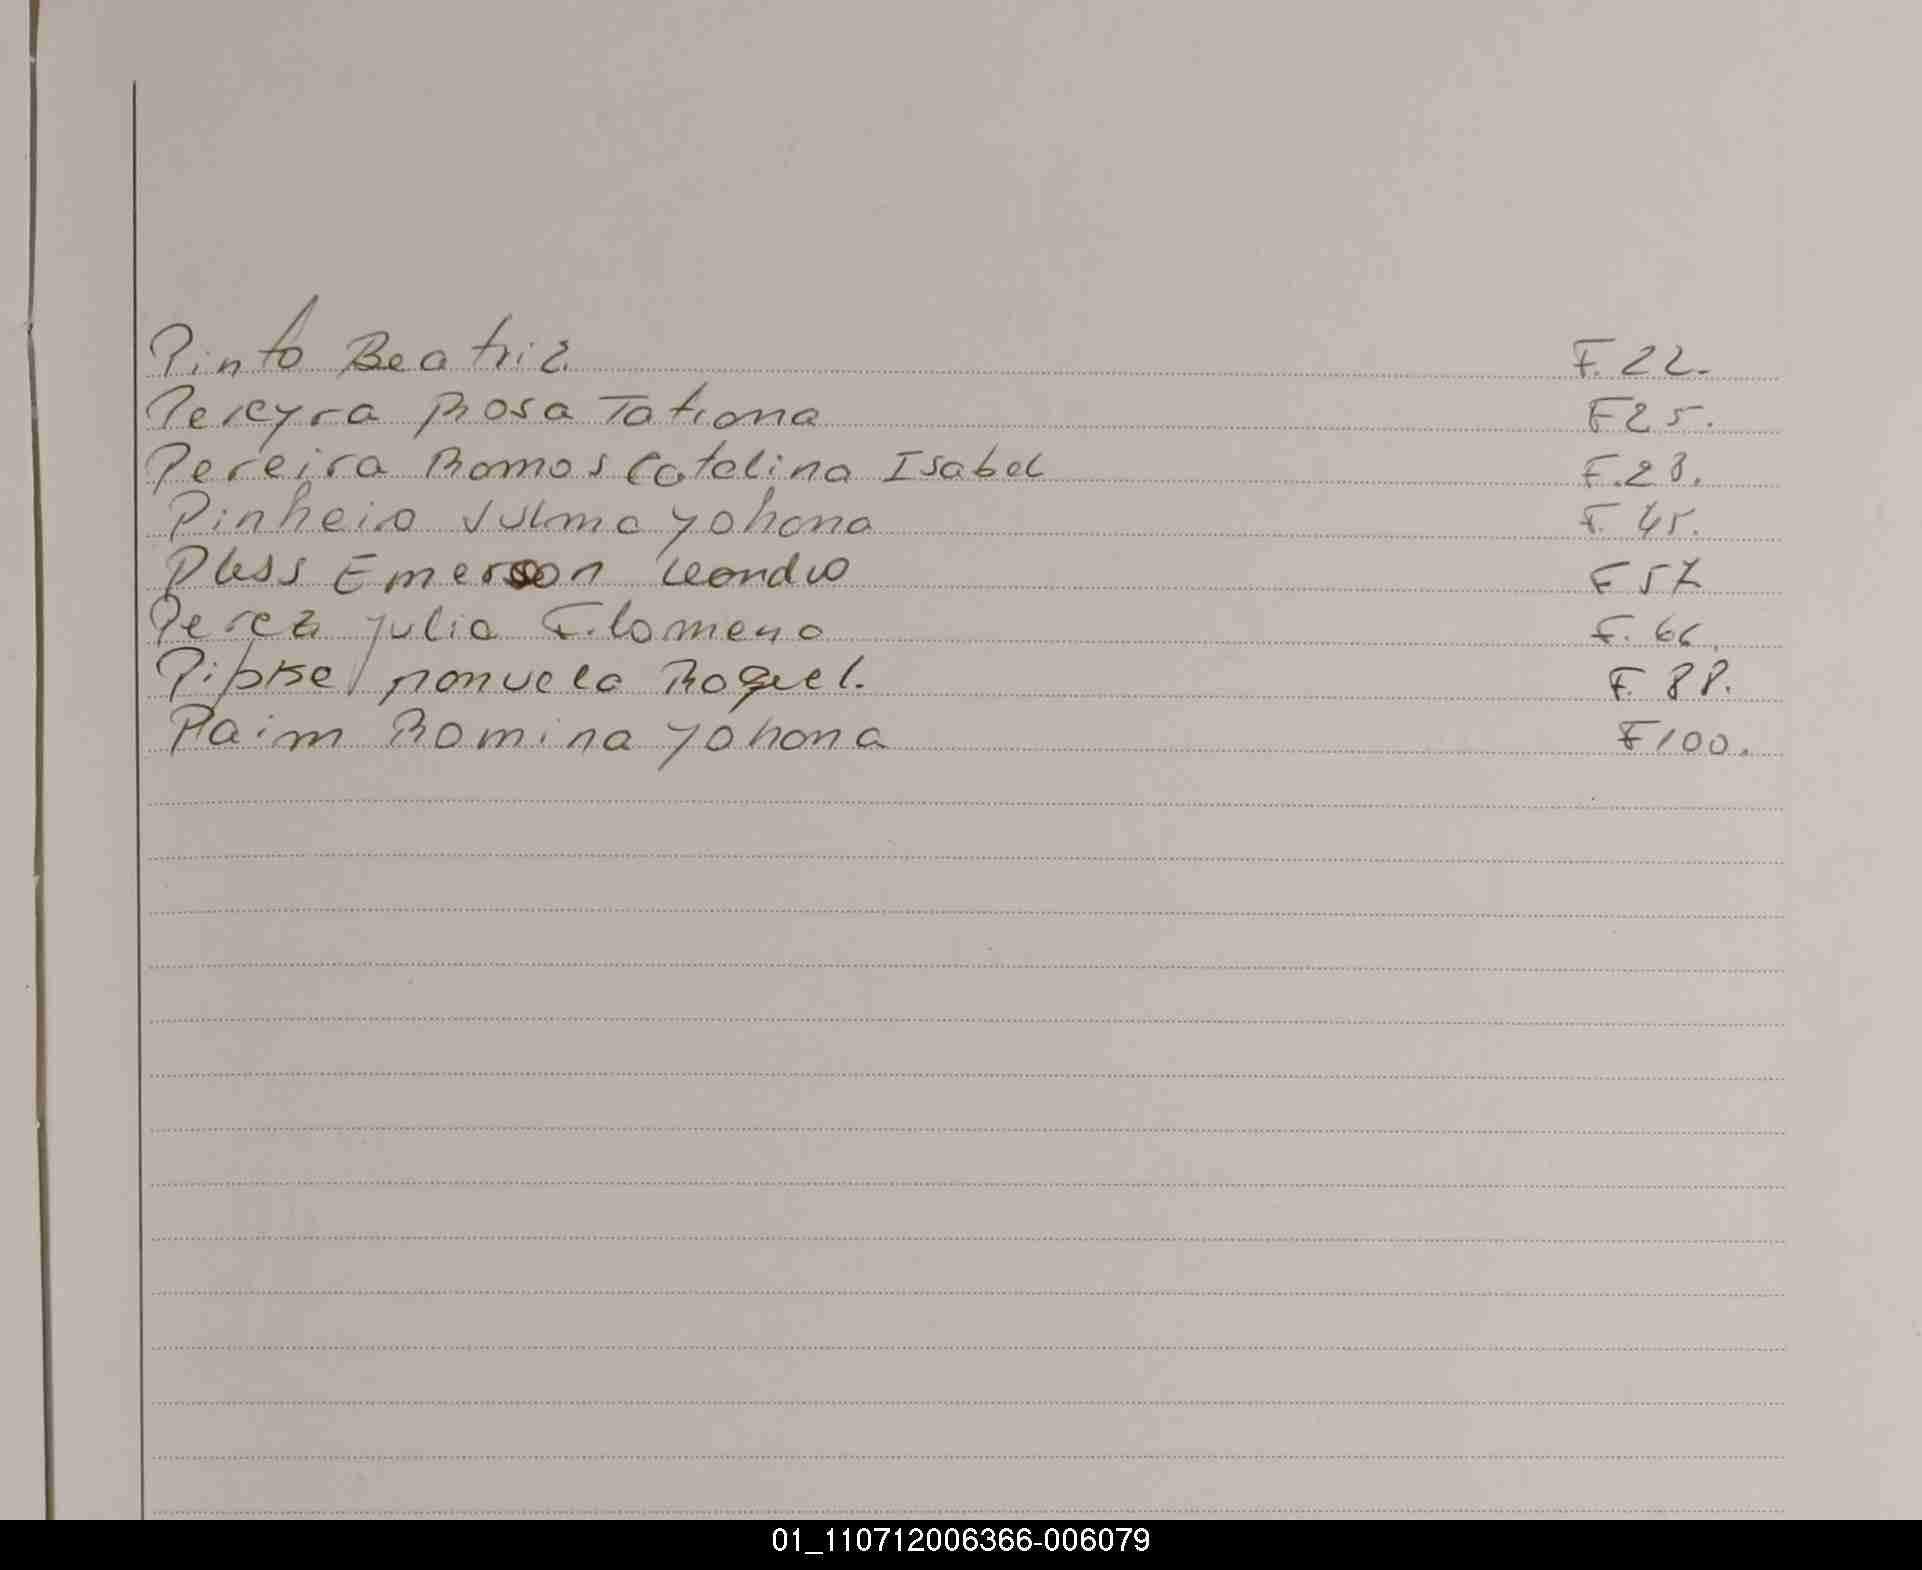 Pinto Beatriz F. 22.
Pereyra Rosa Tatiana F 25.
Pereira Ramos Catalina Isabel F. 28.
Pinheiro Yohana F. 45.
Emerson Leandro F 57
Perez Julia Filomena F. 66.
Pipke Manuela Raquel. F. 88.
Paim Romina Yohana F 100.
01_110712006366-006079